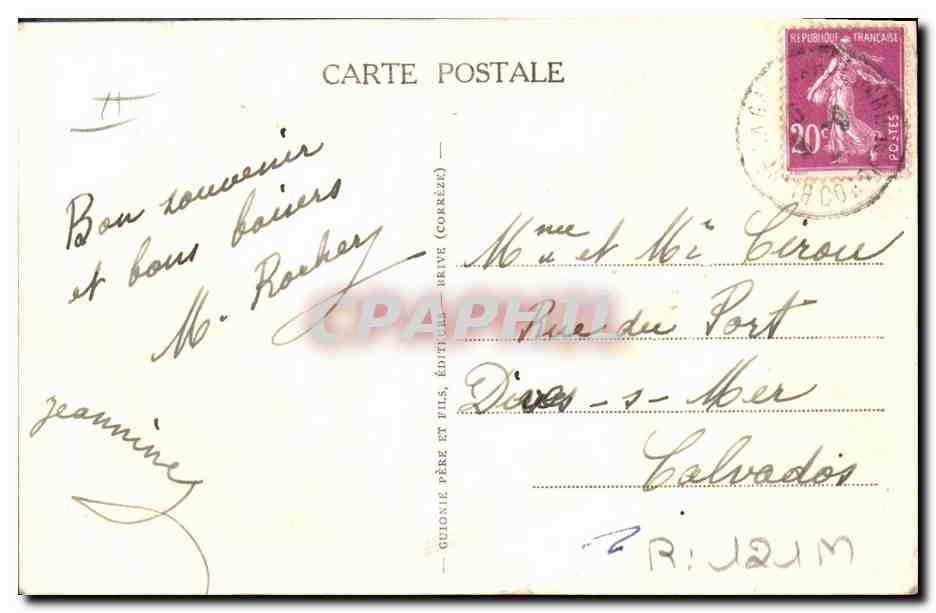 CARTE POSTALE
REPUBLIQUE FRANÇAISE
20c
POSTES
Bon souvenir
et bons baisers
M. Rocher
Jeannine
GUIONIE PÈRE ET FILS, ÉDITEURS — BRIVE (CORRÈZE)
Mme et Mr Cirou
Rue du Port
Dives-s-Mer
Calvados
R: 121M
CPAPHIL